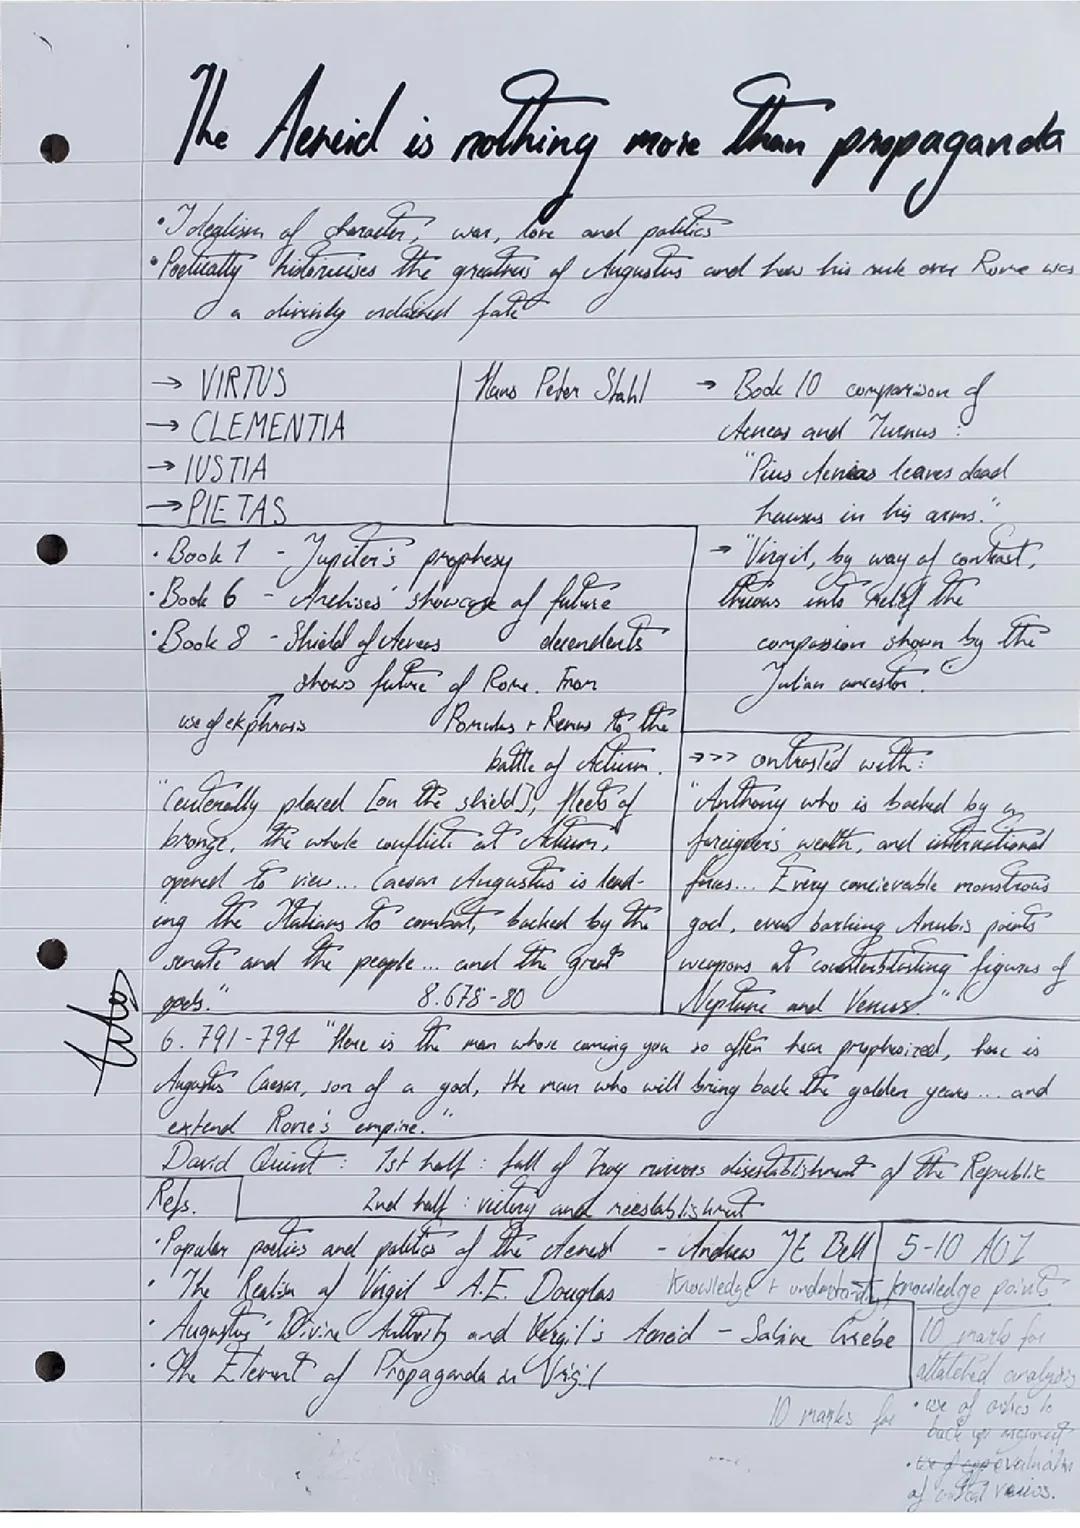 The Aeneid is nothing more than propaganda
• Idealism of character, war, love and politics
• Poetically historicises the greatness of Augustus and how his rule over Rome was
a divinely ordained fate
→ VIRTUS
→ CLEMENTIA
→ IUSTIA
→ PIETAS
Hans Peter Stahl
→ Book 10 comparison of
Aeneas and Turnus :
"Pius Aeneas leaves dead
in his arms."
→ "Virgil, by way of contrast,
throws into relief the
compassion shown by the
Julian ancestor."
• Book 1 - Jupiter's prophesy
• Book 6 - Anchises' showcase of future
decendents
• Book 8 - Shield of Aeneas
shows future of Rome. From
Romulus + Remus to the
battle of Actium.
use of ekphrasis
"Centerally placed [on the shield], fleets of
bronze, the whole conflict at Actium,
opened to view... Caesar Augustus is lead-
ing the Italians to combat, backed by the
senate and the people... and the great
gods." 8.678-80
→>> contrasted with:
"Anthony who is backed by a
foreigner's wealth, and international
forces... Every concievable monstrous
god, even barking Anubis points
weapons at counterblasting figures of
Neptune and Venus."
6. 791-794 "Here is the man whose coming you so often hear prophesized, here is
Augustus Caesar, son of a god, the man who will bring back the golden years... and
extend Rome's empire."
David Quint : 1st half : fall of Troy mirrors disestablishment of the Republic
2nd half : victory and reestablishment
Refs.
• Popular poetics and politics of the Aeneid - Andrew JE Bell
• The Realism of Virgil - A.E. Douglas
• Augustus' Divine Authority and Vergil's Aeneid - Sabine Grebe
• The Element of Propaganda in Virgil
5-10 AO1
Knowledge + understanding knowledge points
10 marks for
attatched analysis
10 marks for • use of critics to
back up argument
• evaluation
of critical views.